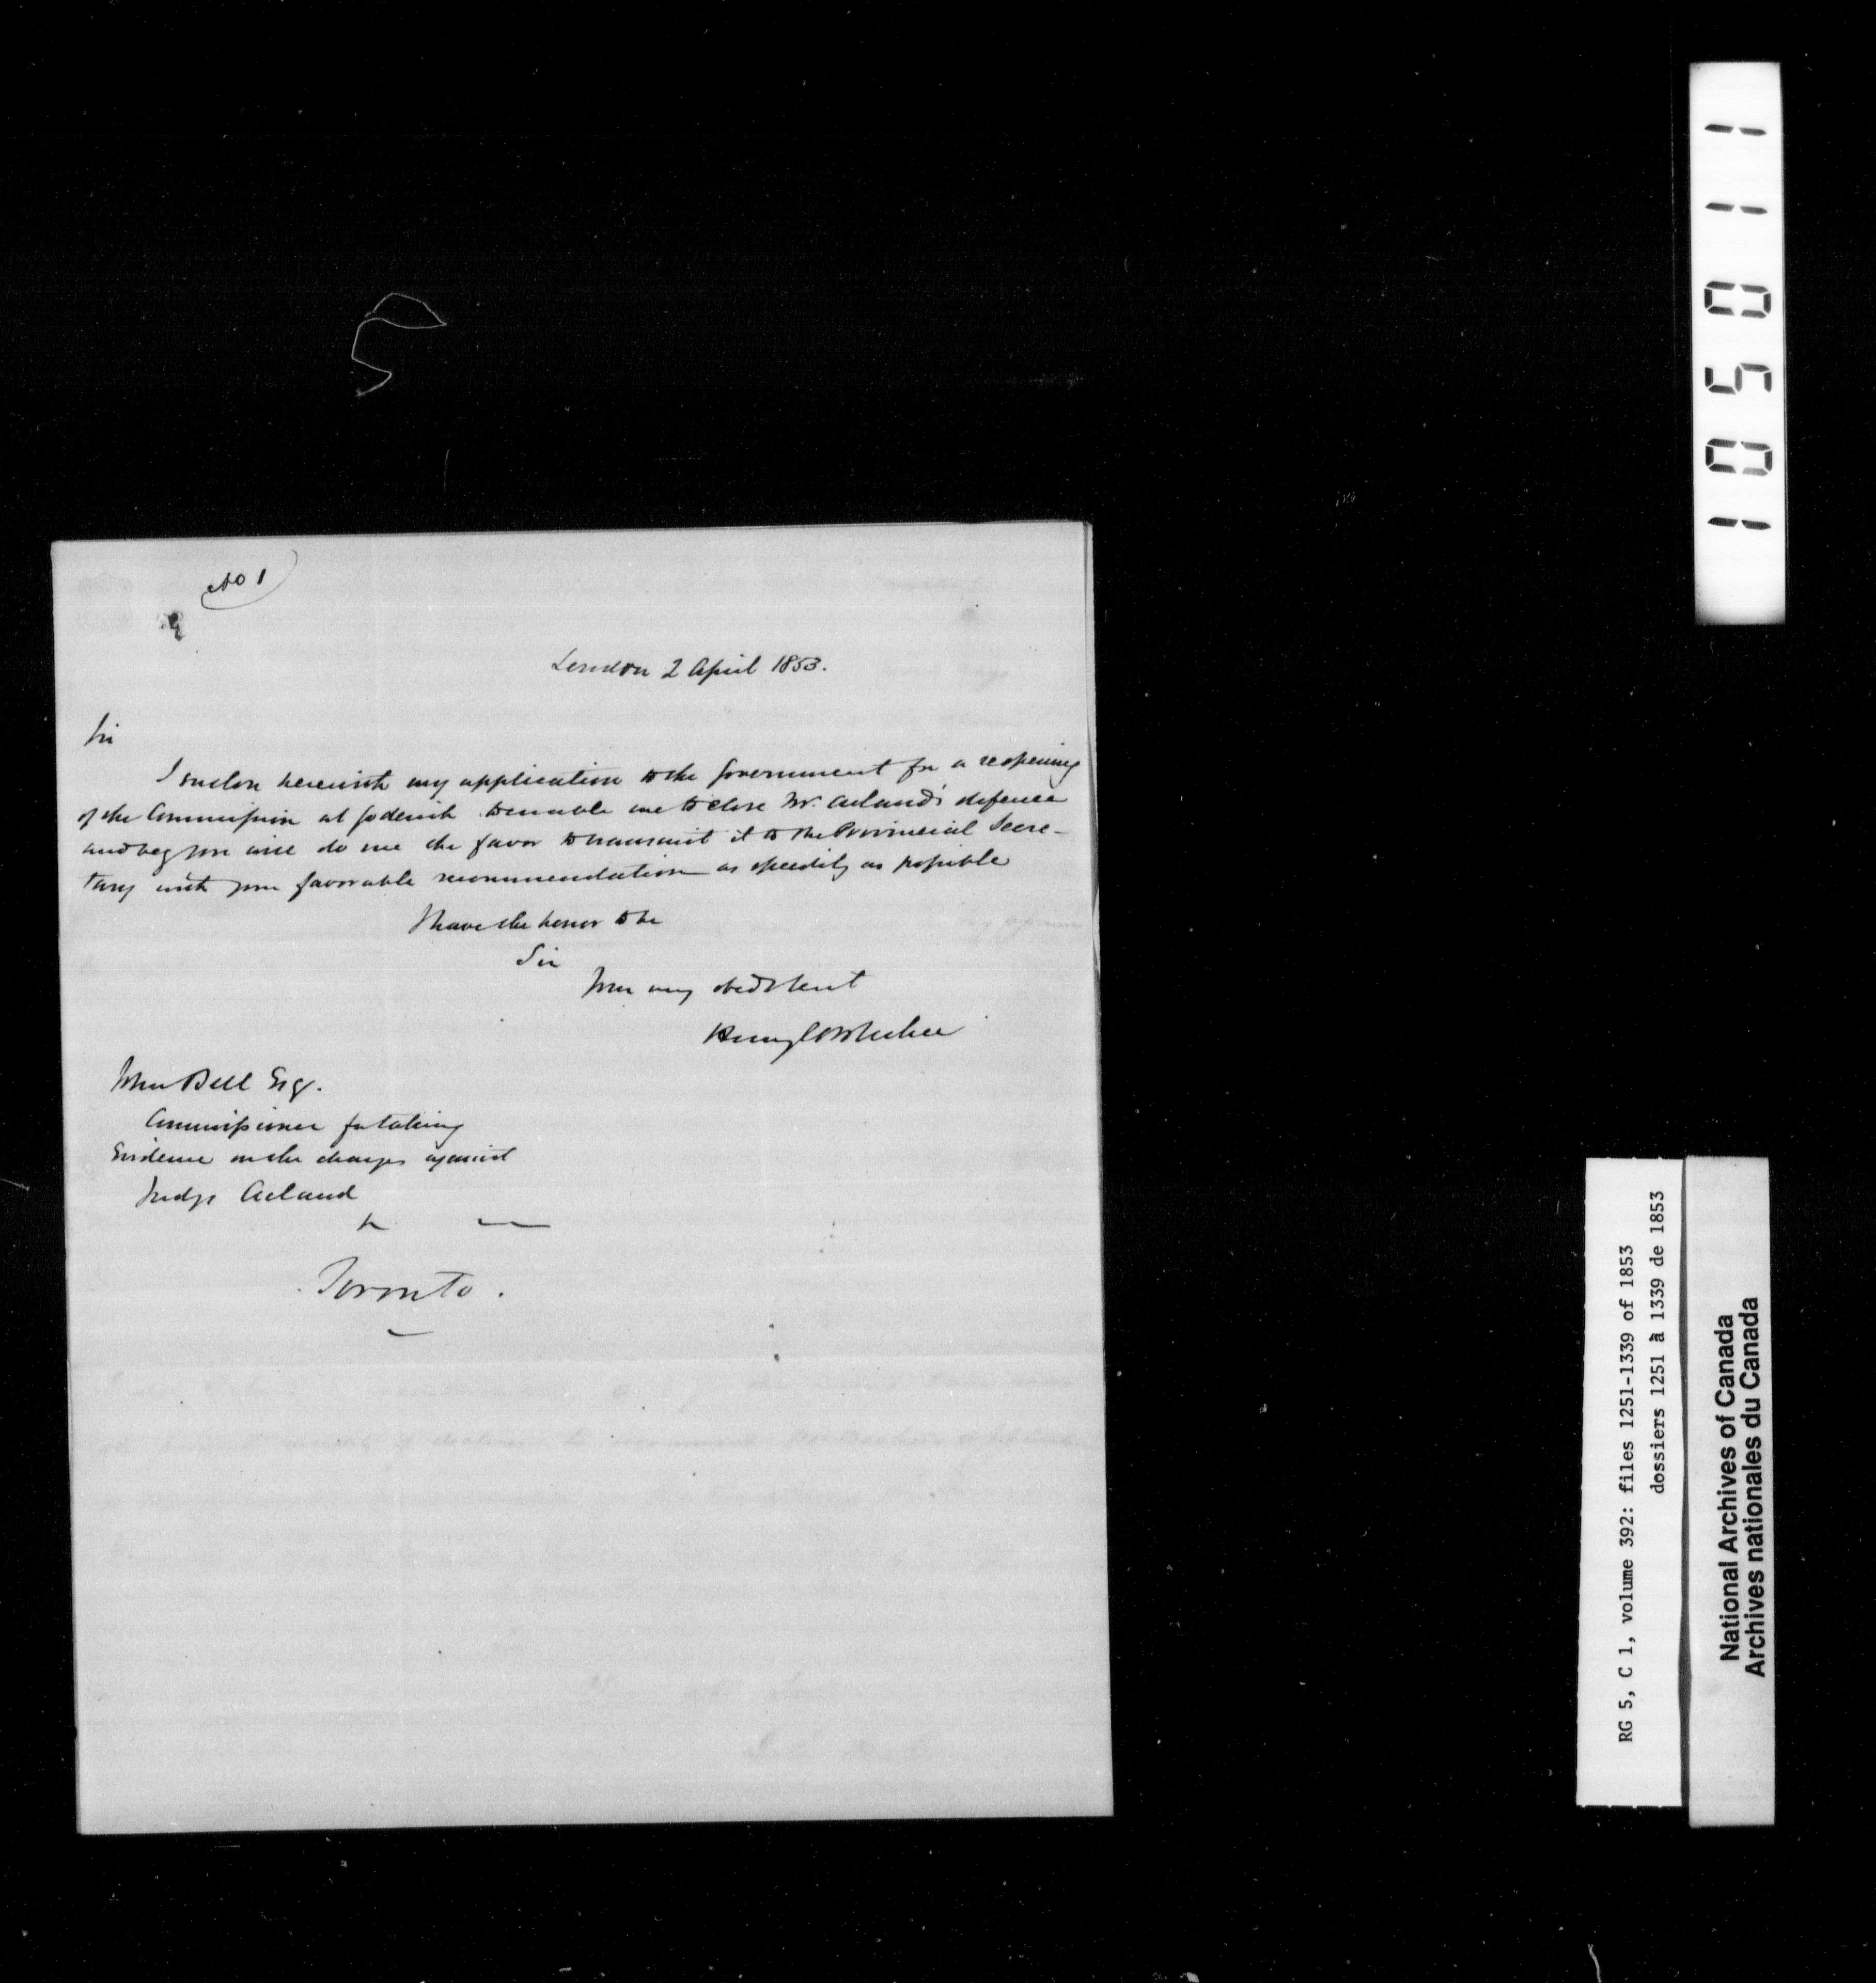 No 1
London 2 April 1853.
Sir
I enclose herewith my application to the Government for a reopening
of the Commission at Goderich to enable me to close Mr. Acland's defence
and beg you will do me the favor to transmit it to the Provincial Secre-
tary with your favorable recommendation as speedily as possible
I have the honor to be
Sir
Your very obed Servt
Henry
John Bell Esq.
Commissioner for taking
Evidence on the charges against
Judge Acland
Toronto.
5
110501
RG 5, C 1, volume 392: files 1251-1339 of 1853
dossiers 1251 à 1339 de 1853
National Archives of Canada
Archives nationales du Canada